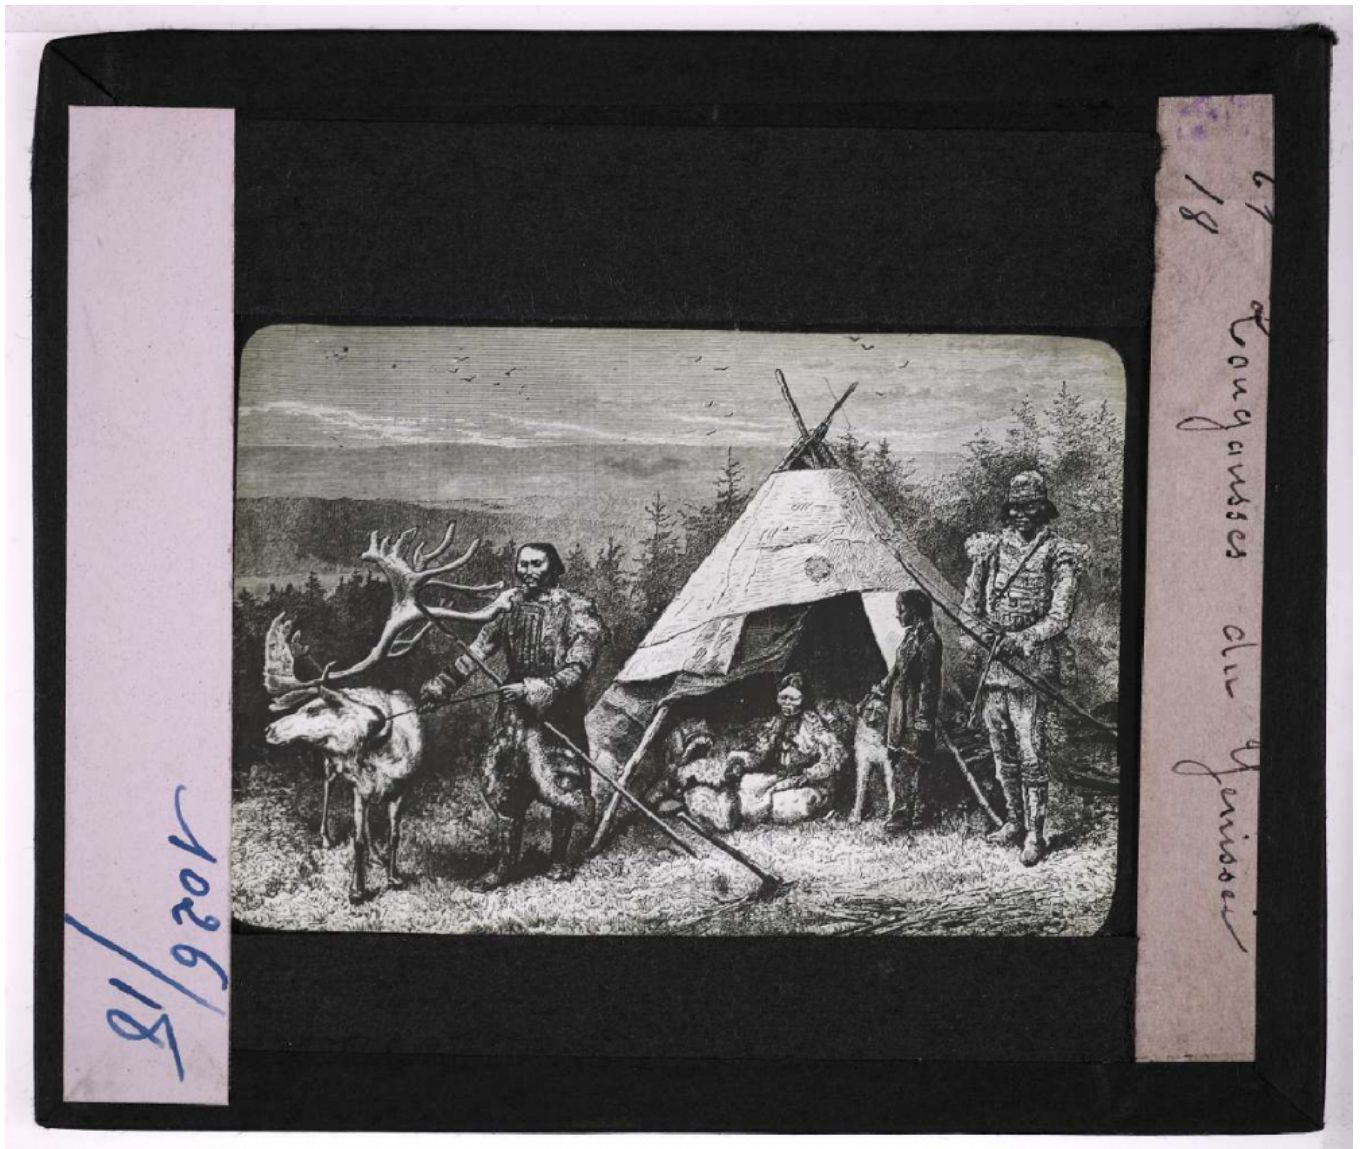 1026
/18
61 Tongousses du Yenissei
18